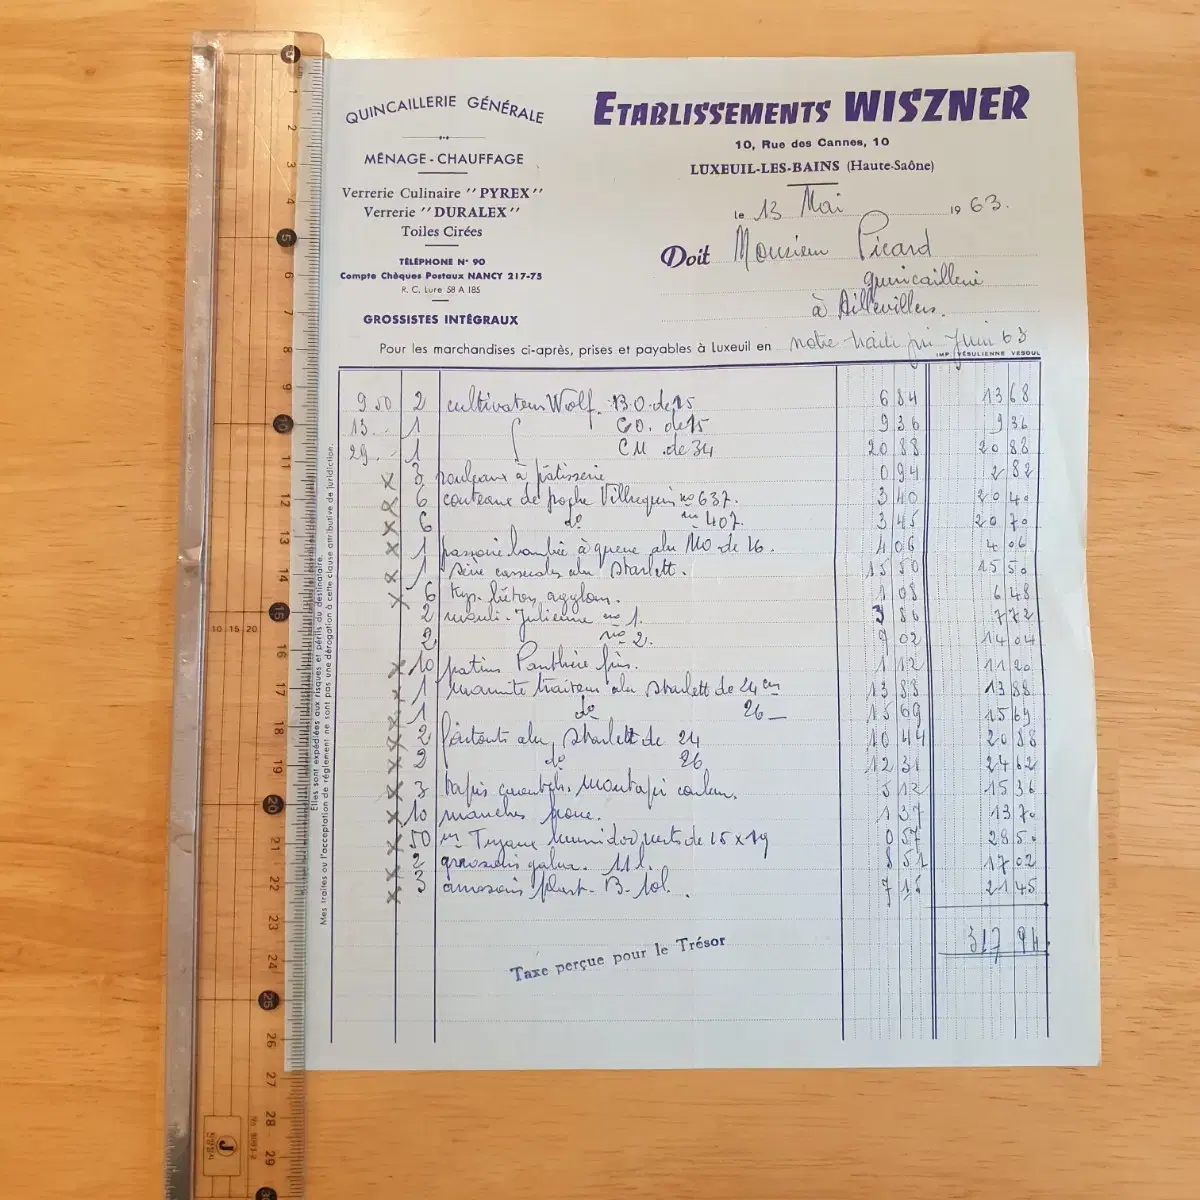 QUINCAILLERIE GÉNÉRALE
MÉNAGE - CHAUFFAGE
Verrerie Culinaire "PYREX"
Verrerie "DURALEX"
Toiles Cirées
TÉLÉPHONE N° 90
Compte Chèques Postaux NANCY 217-75
R. C. Lure 58 A 185
GROSSISTES INTÉGRAUX
ETABLISSEMENTS WISZNER
10, Rue des Cannes, 10
LUXEUIL-LES-BAINS (Haute-Saône)
le 13 Mai 1963.
Doit Monsieur Picard
quincaillerie
à Aillevillers.
Pour les marchandises ci-après, prises et payables à Luxeuil en notre traite fin Juin 63
IMP. VÉSULIENNE VESOUL
9 50 2 cultivateurs Wolf. B.O. de 15 6 84 13 68
13 1 C.O. de 15 9 36 9 36
29 1 CM. de 34 20 88 20 88
x 3 rouleaux à pâtisserie 0 94 2 82
x 6 couteaux de poche Villequin no 637. 3 40 20 40
x 6 do no 407. 3 45 20 70
x 1 passoire bombée à queue alu MO de 16. 4 06 4 06
x 1 série casseroles alu Starlett. 15 50 15 50
x 6 agglom. 1 08 6 48
2 mouli-Julienne no 1. 3 86 7 72
2 no 2. 9 02 14 04
x 10 patins Panthère fins. 1 12 11 20
x 1 marmite traiteur alu Starlett de 24 cm 13 88 13 88
x 1 do 26 15 69 15 69
x 2 faitouts alu Starlett de 24 10 44 20 88
x 2 do 26 12 31 24 62
x 3 tapis caoutch. Montapi couleur. 5 12 15 36
x 10 manches 1 37 13 70
x 50 m Tuyau verts de 15 x 19 0 57 28 50
x 2 galva. 11 l. 8 51 17 02
x 3 arrosoirs plast. B. 10l. 7 15 21 45
317 94
Taxe perçue pour le Trésor
Elles sont expédiées aux risques et périls du destinataire.
Mes traites ou l'acceptation de règlement ne sont pas une dérogation à cette clause attributive de juridiction.
1
2
3
4
5
6
7
8
9
10
11
12
13
14
15
16
17
18
19
20
21
22
23
24
25
26
27
28
29
30
10 15 20
J